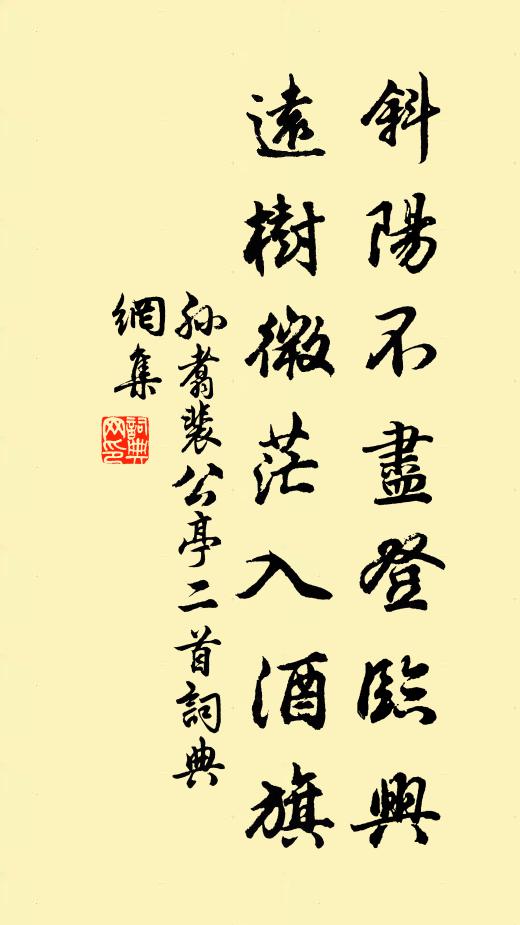 斜陽不盡登臨興
遠樹微茫入酒旗
孙翥裴公亭二首詞典
網集
詞典
网印